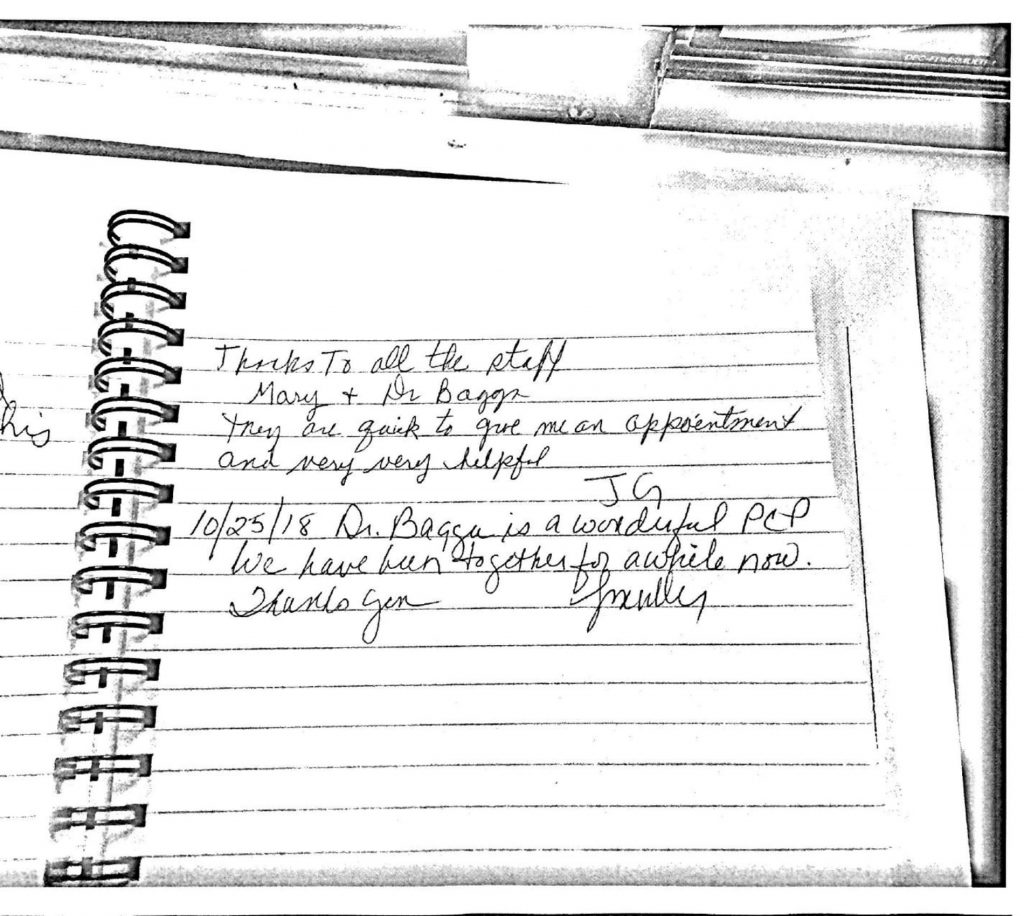 his
Thanks To all the staff
Mary + Dr Bagga
They are quick to give me an appointment
and very very helpful
JG
10/25/18 Dr. Bagga is a wonderful PCP
We have been together for awhile now.
Thanks